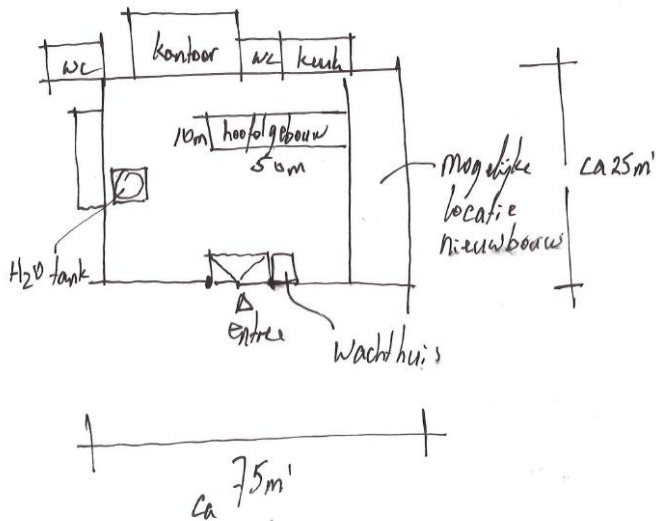 wc
kantoor
wc
keuk
10m
hoofdgebouw
50m
mogelijke
locatie
nieuwbouw
ca 25m'
H2O tank
entree
wachthuis
ca 75m'